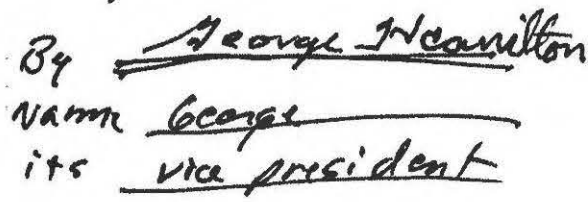 By George Hamilton
Name George
its vice president